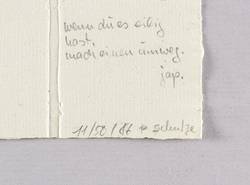 wenn du es eilig
hast.
mach einen umweg.
jap.
11/50/86 schulze